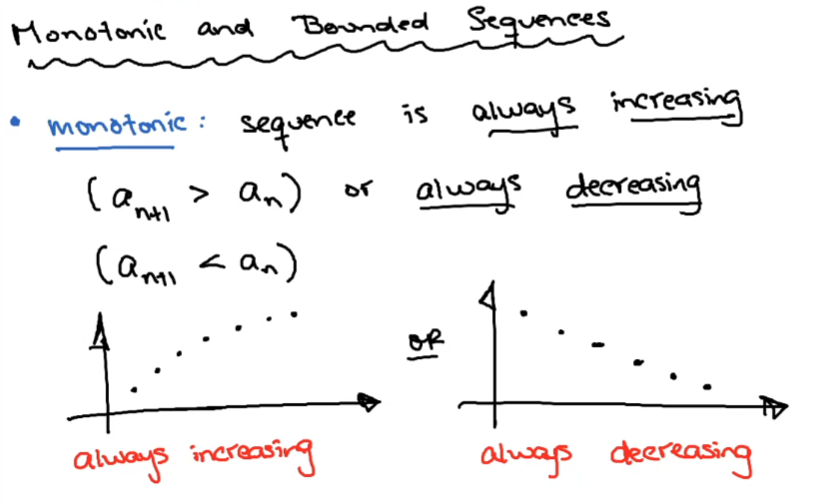 Monotonic and Bounded Sequences
• monotonic: sequence is always increasing
(a_{n+1} > a_n) or always decreasing
(a_{n+1} < a_n)
OR
always increasing
always decreasing